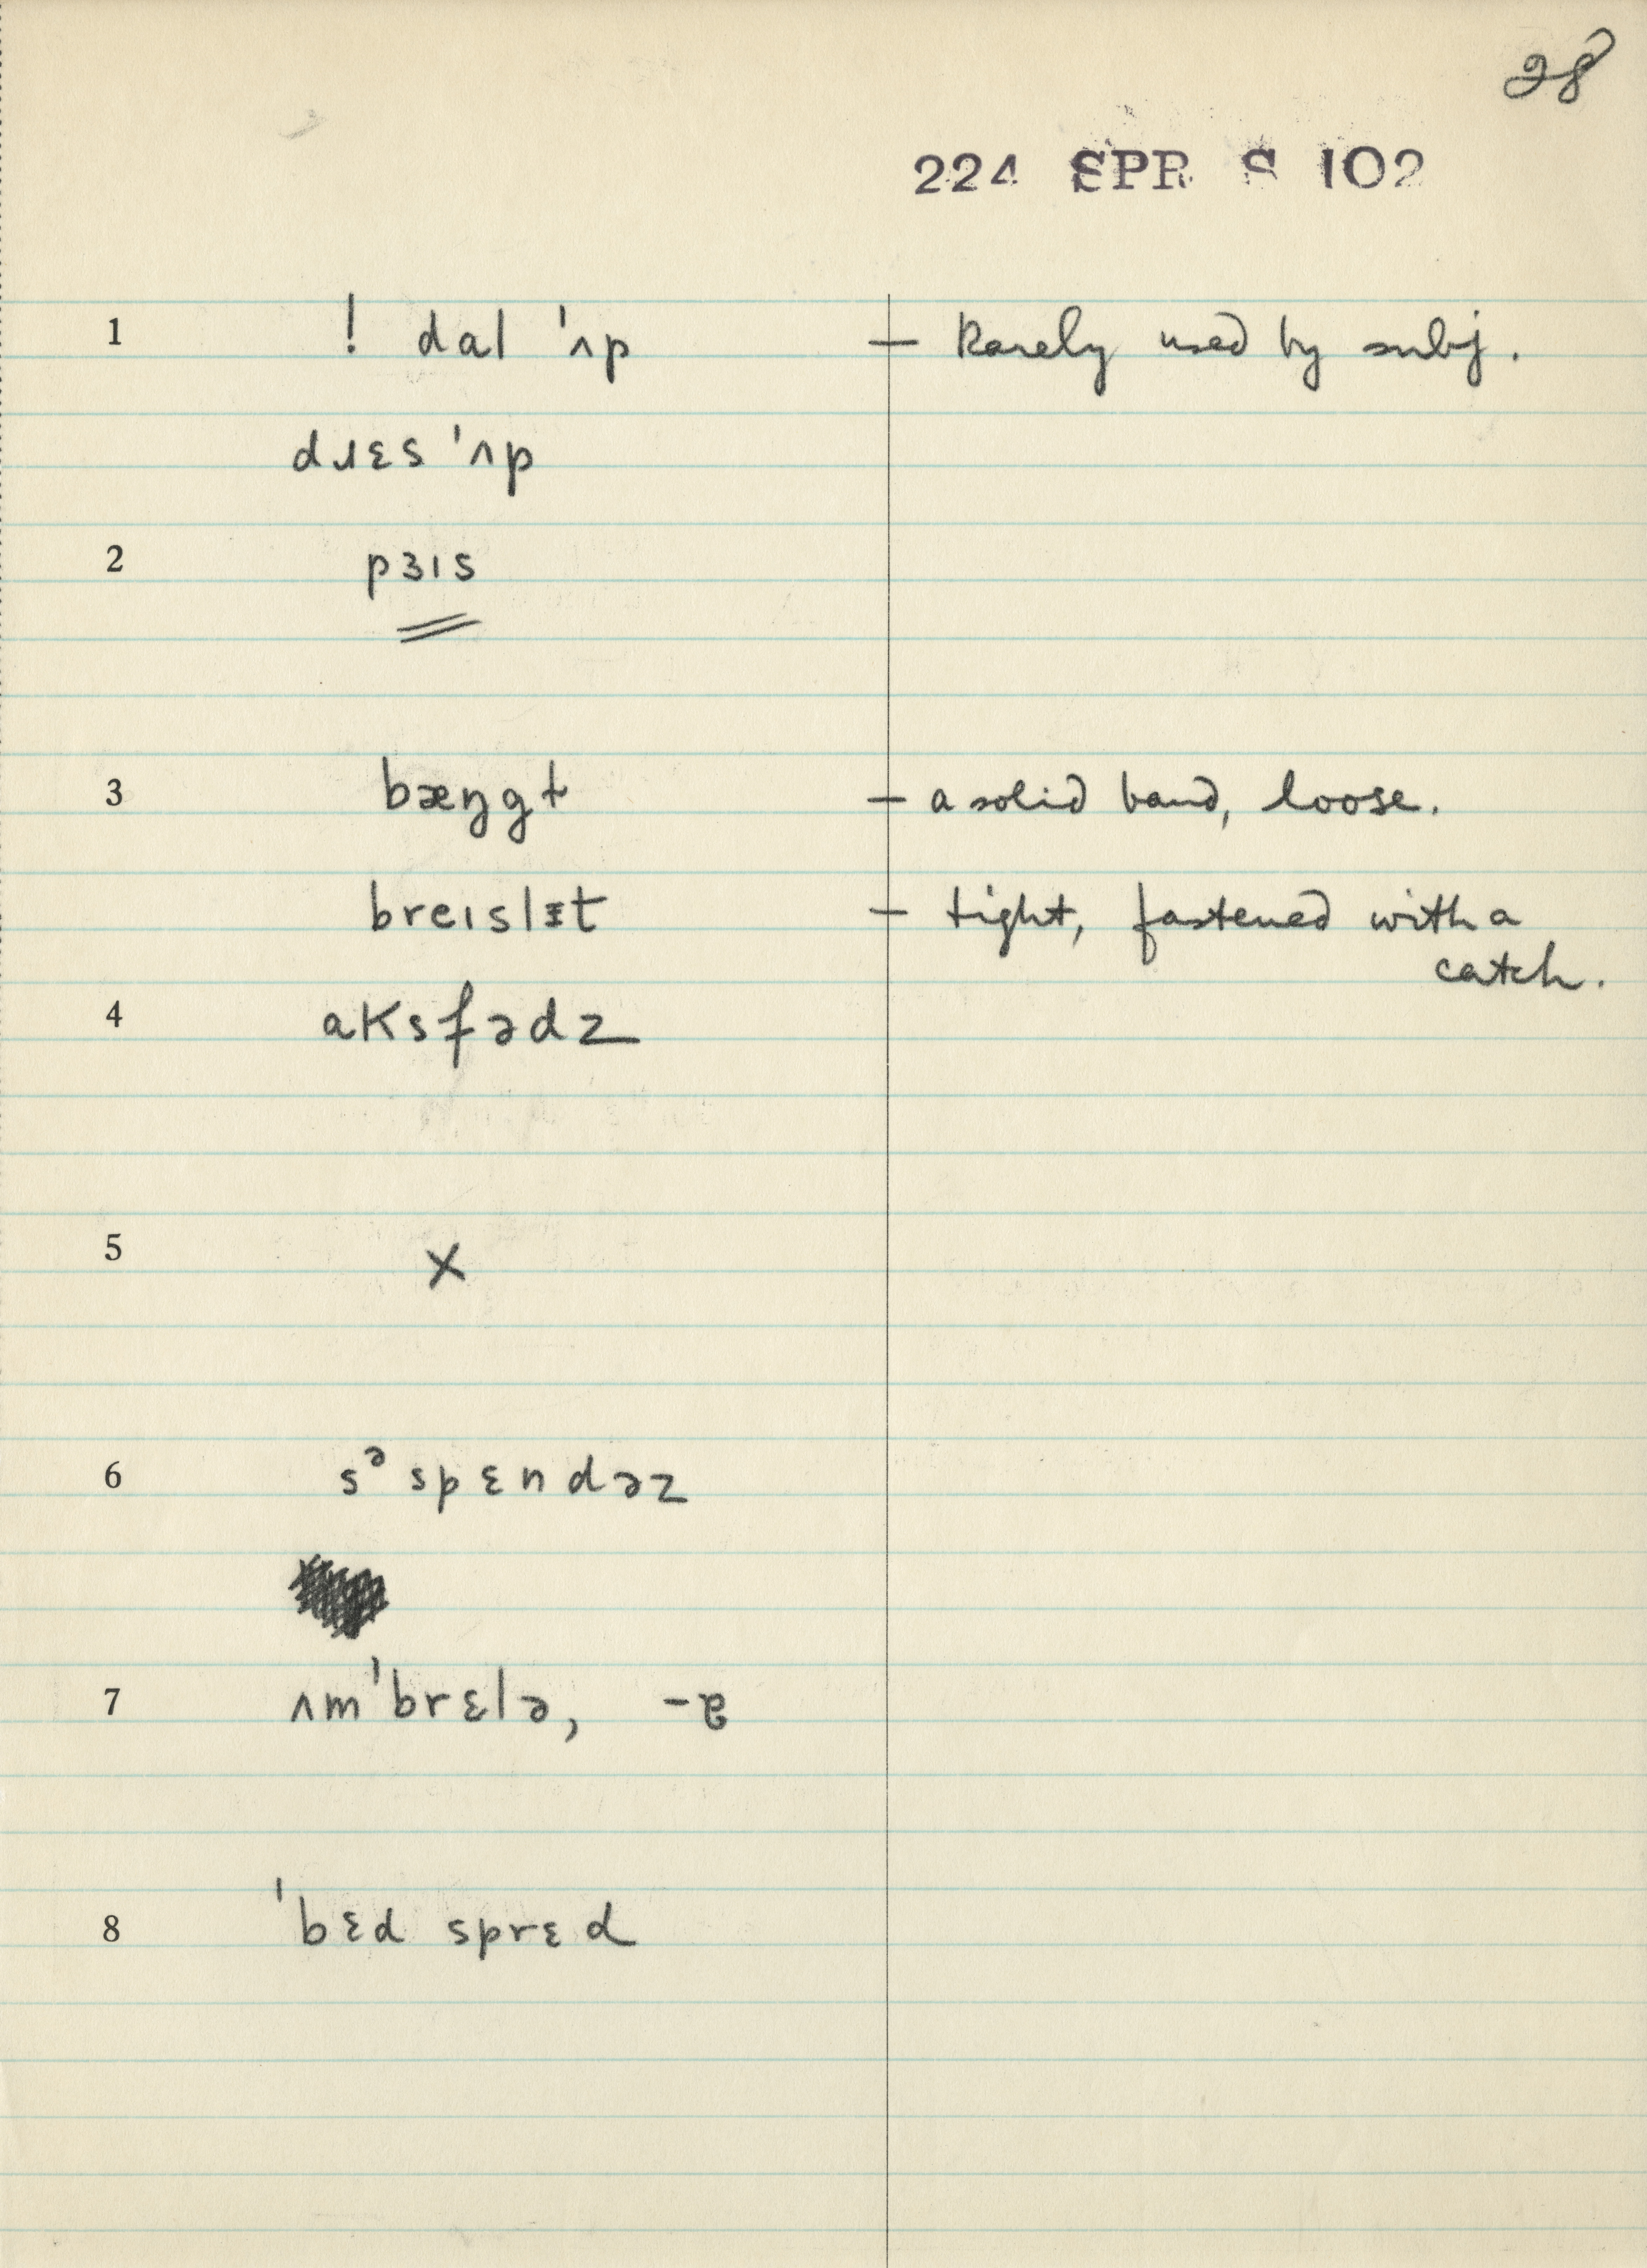 28
224 SPR S 102
1 ! dal ˈʌp — Rarely used by subj.
dɹɛs ˈʌp
2 pɜɪs
3 bæŋgɫ — a solid band, loose.
breɪslɪ̵t — tight, fastened with a
catch.
4 aksfədz
5 X
6 sᵊspɛndəz
7 ʌmˈbrɛlə, -ɐ
8 ˈbɛd sprɛd